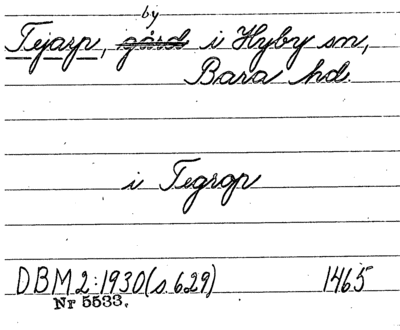 by
Tejarp, gård i Hyby sn,
Bara hd.
i Tegrop
DBM 2:1930 (s. 629) 1465
Nr 5533.